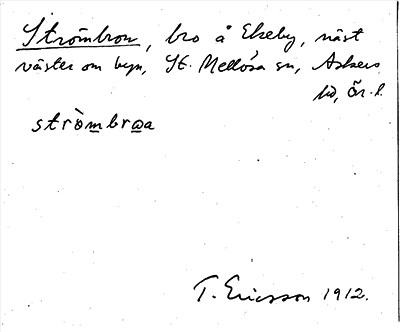 Strömbron, bro å Ekeby, näst
väster om byn, St. Mellösa sn, Askers
hd, Ör. l.
strö̀mbr@a
T. Ericsson 1912.